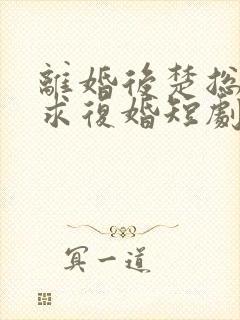 離婚後楚總
求復婚短劇
冥一道